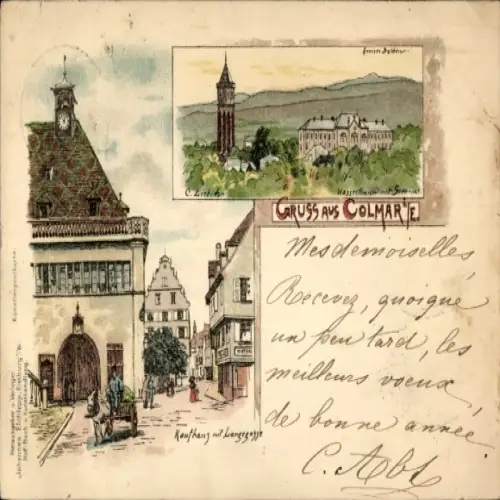 GRUSS AUS COLMAR i/E.
Mesdemoiselles,
Recevez, quoique
un peu tard, les
meilleurs voeux
de bonne année
C. Abt
Kaufhaus mit Langegasse
Künstlerpostkarte.
Herausgeber u. Verleger
Johannes Elchlepp, Freiburg i/B.
Hof-Buch- u. Kunsthandlung